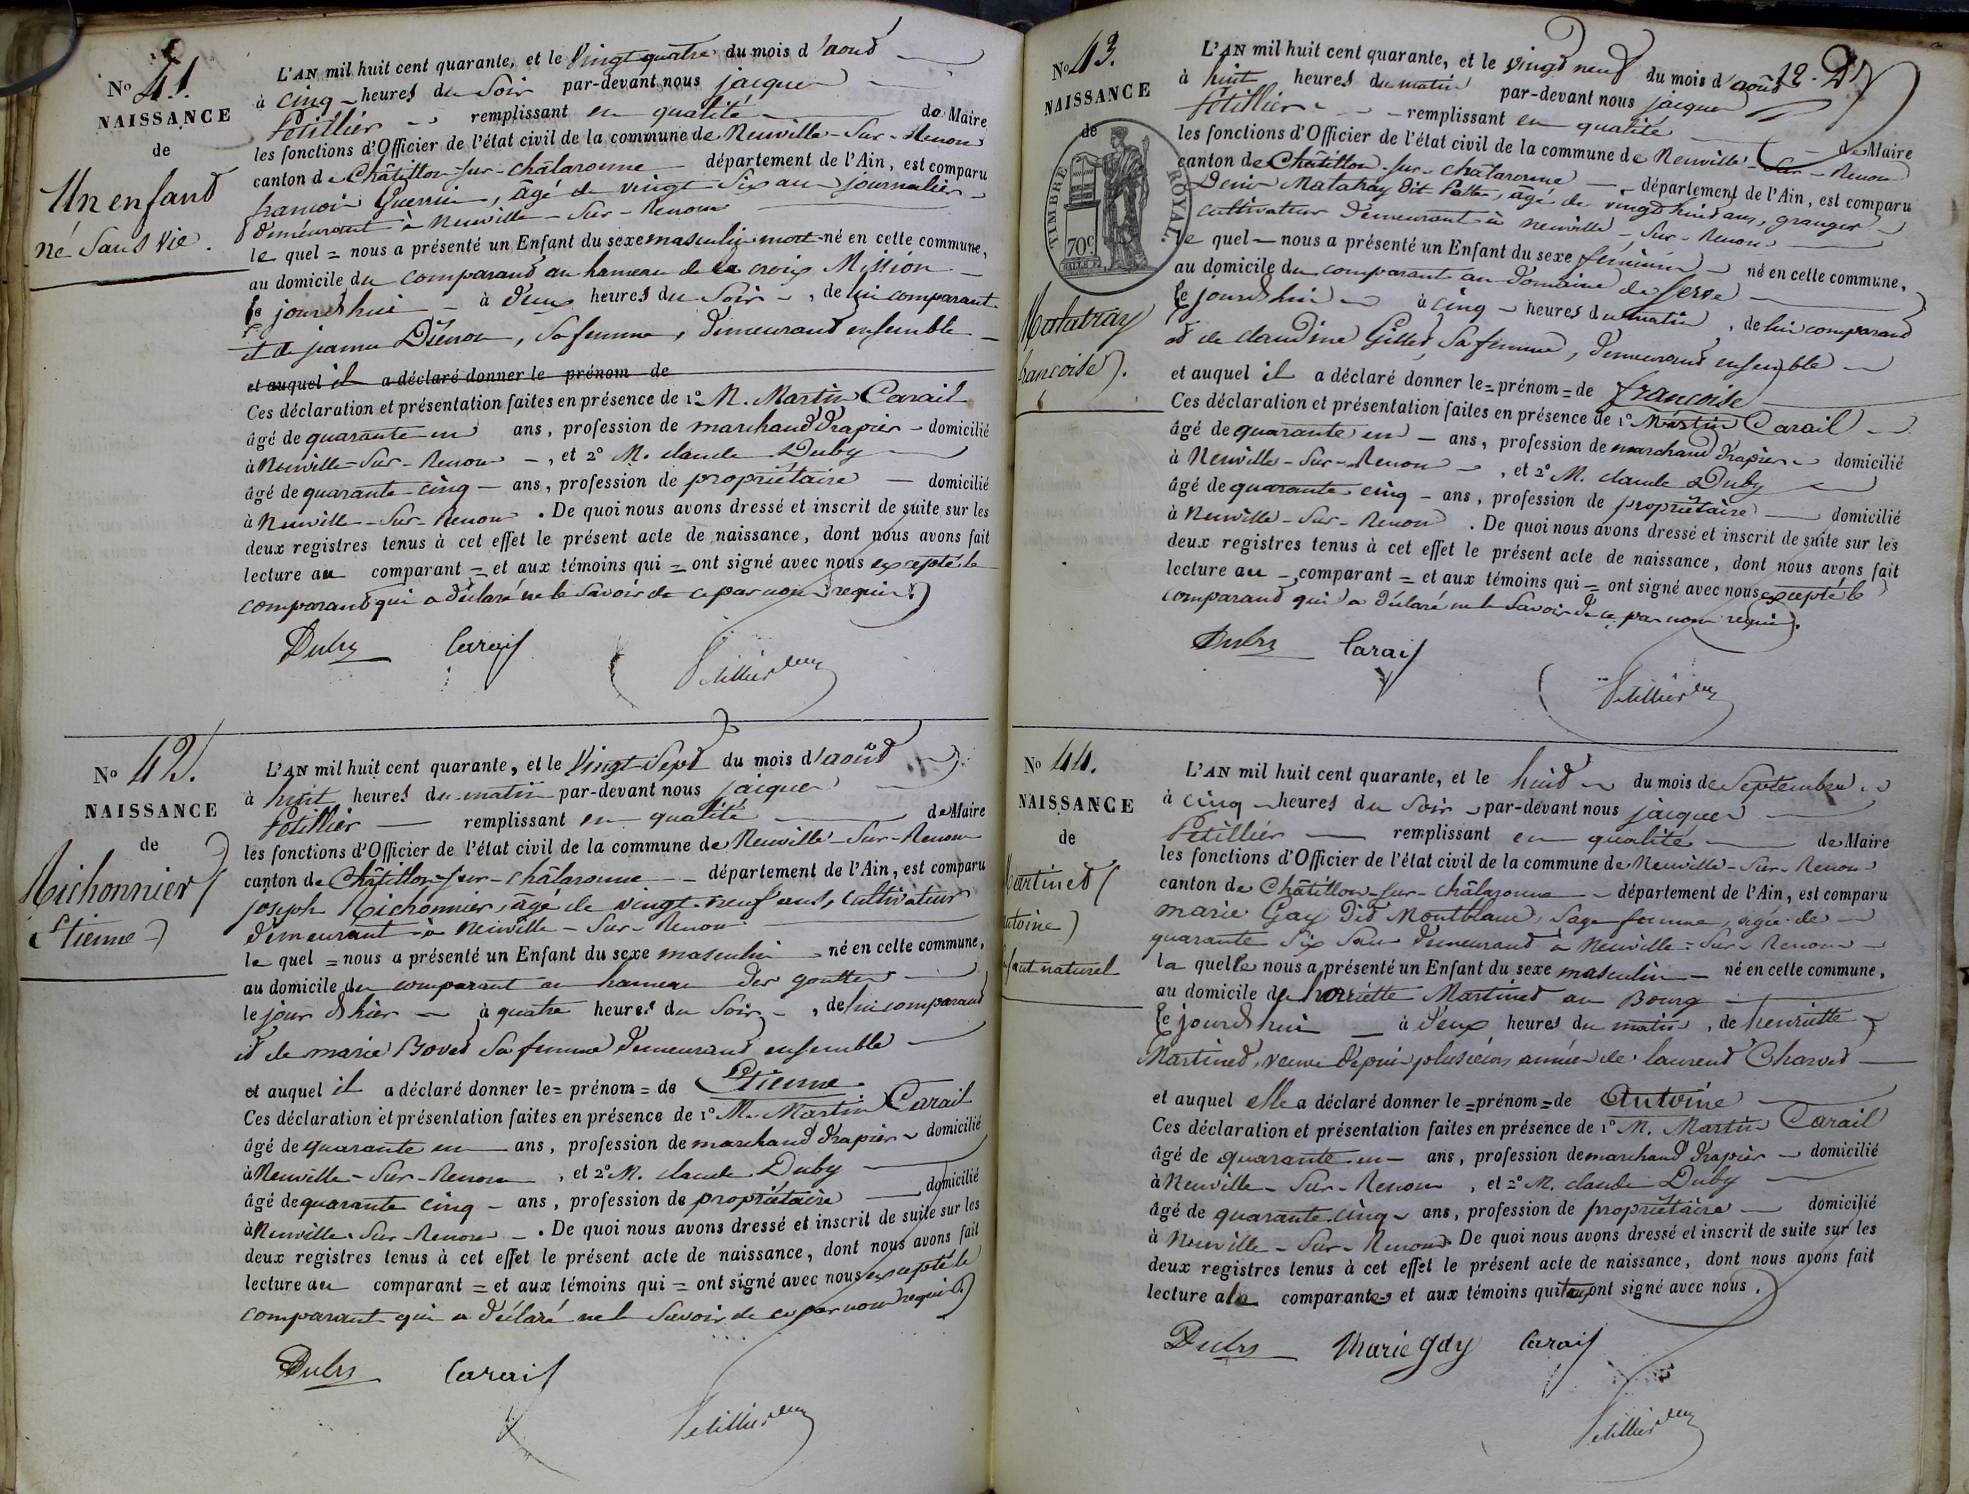 No 41.
NAISSANCE
de
Un enfant
né Sans vie.
L'AN mil huit cent quarante, et le Vingt quatre du mois d'aout
à cinq heures du Soir par-devant nous jacques
Pétillier remplissant en qualité de Maire
les fonctions d'Officier de l'état civil de la commune de Neuville-Sur-Renon
canton de Châtillon-sur-châlaronne département de l'Ain, est comparu
françois Guerrin, agé de vingt Six ans journalier
demeurant à Neuville-Sur-Renon
le quel = nous a présenté un Enfant du sexe masculin mort-né en cette commune,
au domicile du comparant au hameau de la croix Mission
le jourd'hui à deux heures du Soir, de lui comparant
et de jeanne Diénon, Sa femme, demeurant ensemble
et auquel il a déclaré donner le prénom de
Ces déclaration et présentation faites en présence de 1° M. Martin Carail
âgé de quarante un ans, profession de marchand drapier domicilié
à Neuville-Sur-Renon, et 2° M. claude Duby
âgé de quarante-cinq ans, profession de propriétaire domicilié
à Neuville-Sur-Renon. De quoi nous avons dressé et inscrit de suite sur les
deux registres tenus à cet effet le présent acte de naissance, dont nous avons fait
lecture au comparant = et aux témoins qui = ont signé avec nous excepté le
comparant qui a déclaré ne le Savoir de ce par nous requis.
Duby Carail
Petillier
No 42.
NAISSANCE
de
Michonnier
Etienne
L'AN mil huit cent quarante, et le Vingt-Sept du mois d'août
à huit heures du matin par-devant nous jacques
Pétillier remplissant en qualité de Maire
les fonctions d'Officier de l'état civil de la commune de Neuville-Sur-Renon
canton de Châtillon-sur-châlaronne département de l'Ain, est comparu
joseph Michonnier, agé de vingt-neuf ans, cultivateur
demeurant à Neuville-Sur-Renon
le quel = nous a présenté un Enfant du sexe masculin né en cette commune,
au domicile du comparant au hameau des gouttes
le jour d'hier à quatre heures du Soir, de lui comparant
et de marie Bovet Sa femme demeurant ensemble
et auquel il a déclaré donner le = prénom = de Etienne
Ces déclaration et présentation faites en présence de 1° M. Martin Carail
âgé de quarante un ans, profession de marchand drapier domicilié
à Neuville-Sur-Renon, et 2° M. claude Duby
âgé de quarante cinq ans, profession de propriétaire domicilié
à Neuville-Sur-Renon. De quoi nous avons dressé et inscrit de suite sur les
deux registres tenus à cet effet le présent acte de naissance, dont nous avons fait
lecture au comparant = et aux témoins qui = ont signé avec nous excepté le
comparant qui a déclaré ne le Savoir de ce par nous requis.
Duby Carail
Petillier
12.
No 43.
NAISSANCE
de
TIMBRE ROYAL.
70c
Matatray
françoise.
L'AN mil huit cent quarante, et le vingt neuf du mois d'août
à huit heures du matin par-devant nous jacques
Pétillier remplissant en qualité de Maire
les fonctions d'Officier de l'état civil de la commune de Neuville-Sur-Renon
canton de Châtillon-sur-châlaronne département de l'Ain, est comparu
Denis Matatray dit Patte, âgé de vingt huit ans, granger
cultivateur demeurant à neuville-Sur-Renon
le quel nous a présenté un Enfant du sexe féminin né en cette commune,
au domicile du comparant au Domaine de Serve
le jourd'hui à cinq heures du matin, de lui comparant
et de claudine Gillet, Sa femme, demeurant ensemble
et auquel il a déclaré donner le = prénom = de françoise
Ces déclaration et présentation faites en présence de 1° Martin Carail
âgé de quarante un ans, profession de marchand drapier domicilié
à Neuville-Sur-Renon, et 2° M. claude Duby
âgé de quarante cinq ans, profession de propriétaire domicilié
à Neuville-Sur-Renon. De quoi nous avons dressé et inscrit de suite sur les
deux registres tenus à cet effet le présent acte de naissance, dont nous avons fait
lecture au comparant = et aux témoins qui = ont signé avec nous excepté le
comparant qui a déclaré ne le Savoir de ce par nous requis.
Duby Carail
Petillier
No 44.
NAISSANCE
de
Martinet
antoine
Enfant naturel
L'AN mil huit cent quarante, et le huit du mois de Septembre
à cinq heures du Soir par-devant nous jacques
Pétillier remplissant en qualité de Maire
les fonctions d'Officier de l'état civil de la commune de Neuville-Sur-Renon
canton de Châtillon-sur-châlaronne département de l'Ain, est comparu
marie Gay Dit Montblanc, Sage femme, agée de
quarante Six ans demeurant à Neuville-Sur-Renon
la quelle nous a présenté un Enfant du sexe masculin né en cette commune,
au domicile de henriette Martinet au Bourg
le jourd'hui à deux heures du matin, de henriette
Martinet, veuve depuis plusieurs années de laurent Charvet
et auquel elle a déclaré donner le = prénom = de Antoine
Ces déclaration et présentation faites en présence de 1° M. Martin Carail
âgé de quarante-un ans, profession de marchand drapier domicilié
à Neuville-Sur-Renon, et 2° M. claude Duby
âgé de quarante-cinq ans, profession de propriétaire domicilié
à Neuville-Sur-Renon. De quoi nous avons dressé et inscrit de suite sur les
deux registres tenus à cet effet le présent acte de naissance, dont nous avons fait
lecture à la comparante et aux témoins qui tous ont signé avec nous.
Duby Marie gay Carail
Petillier